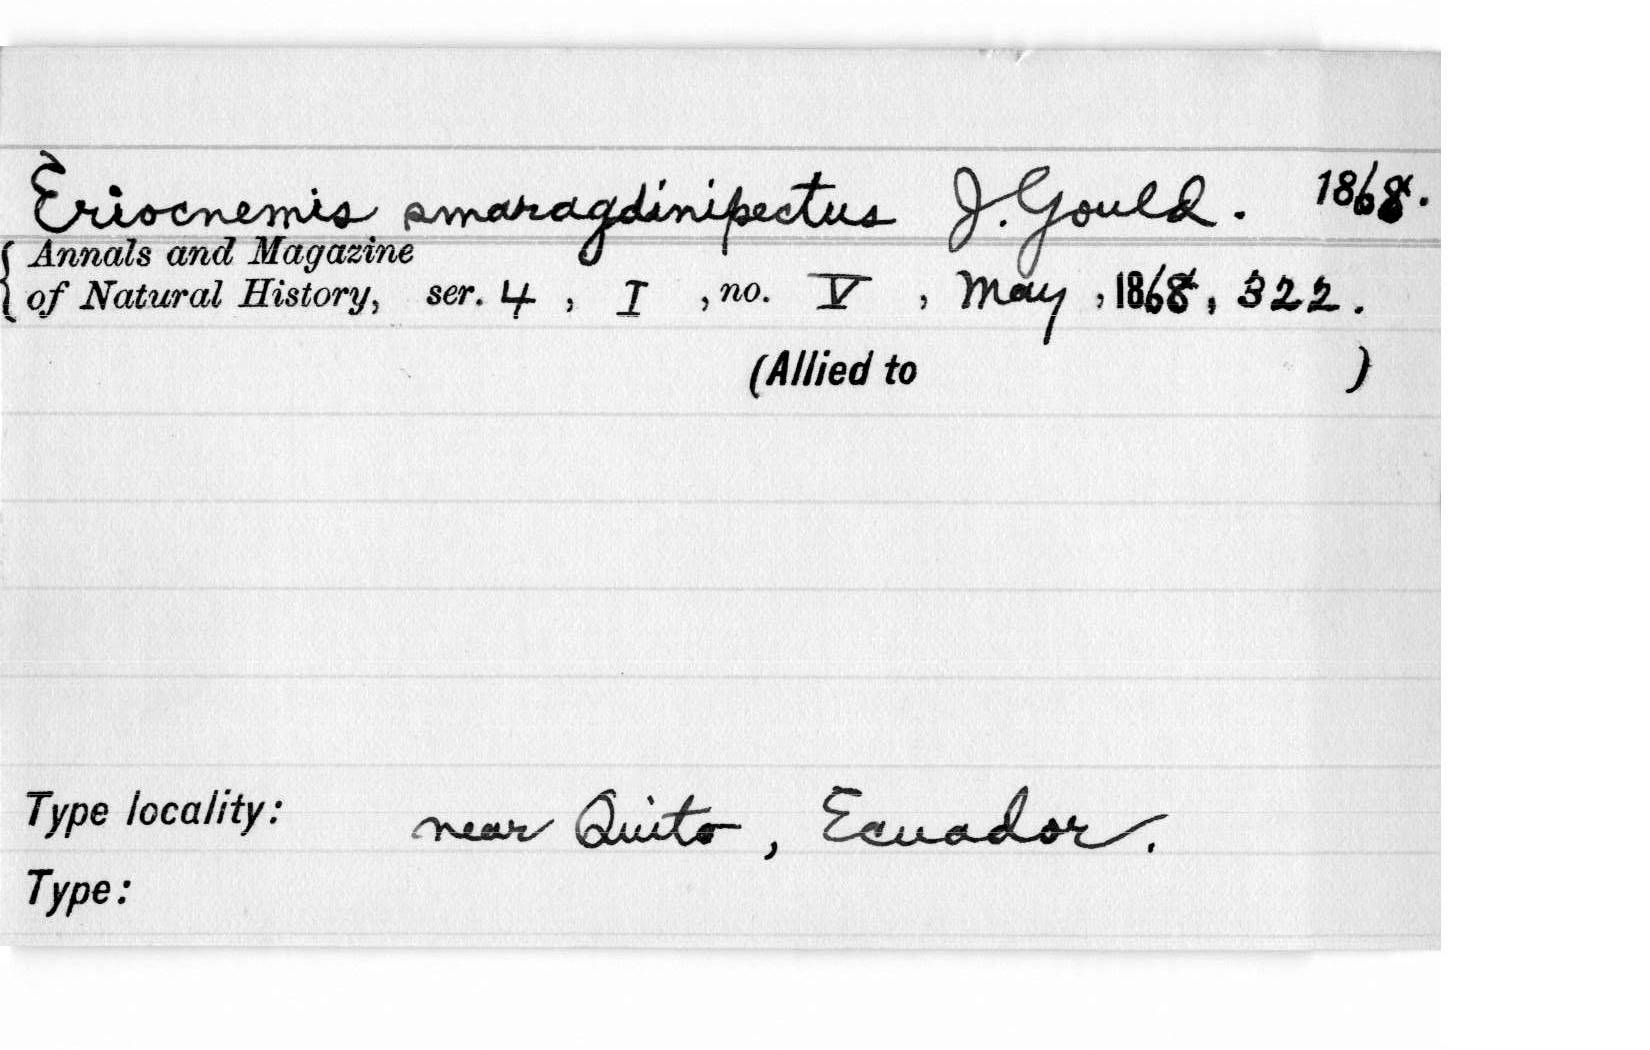 Eriocnemis smaragdinipectus J. Gould. 1868.
{ Annals and Magazine
{ of Natural History, ser. 4, I, no. V, May, 1868, 322.
(Allied to )
Type locality: near Quito, Ecuador.
Type: